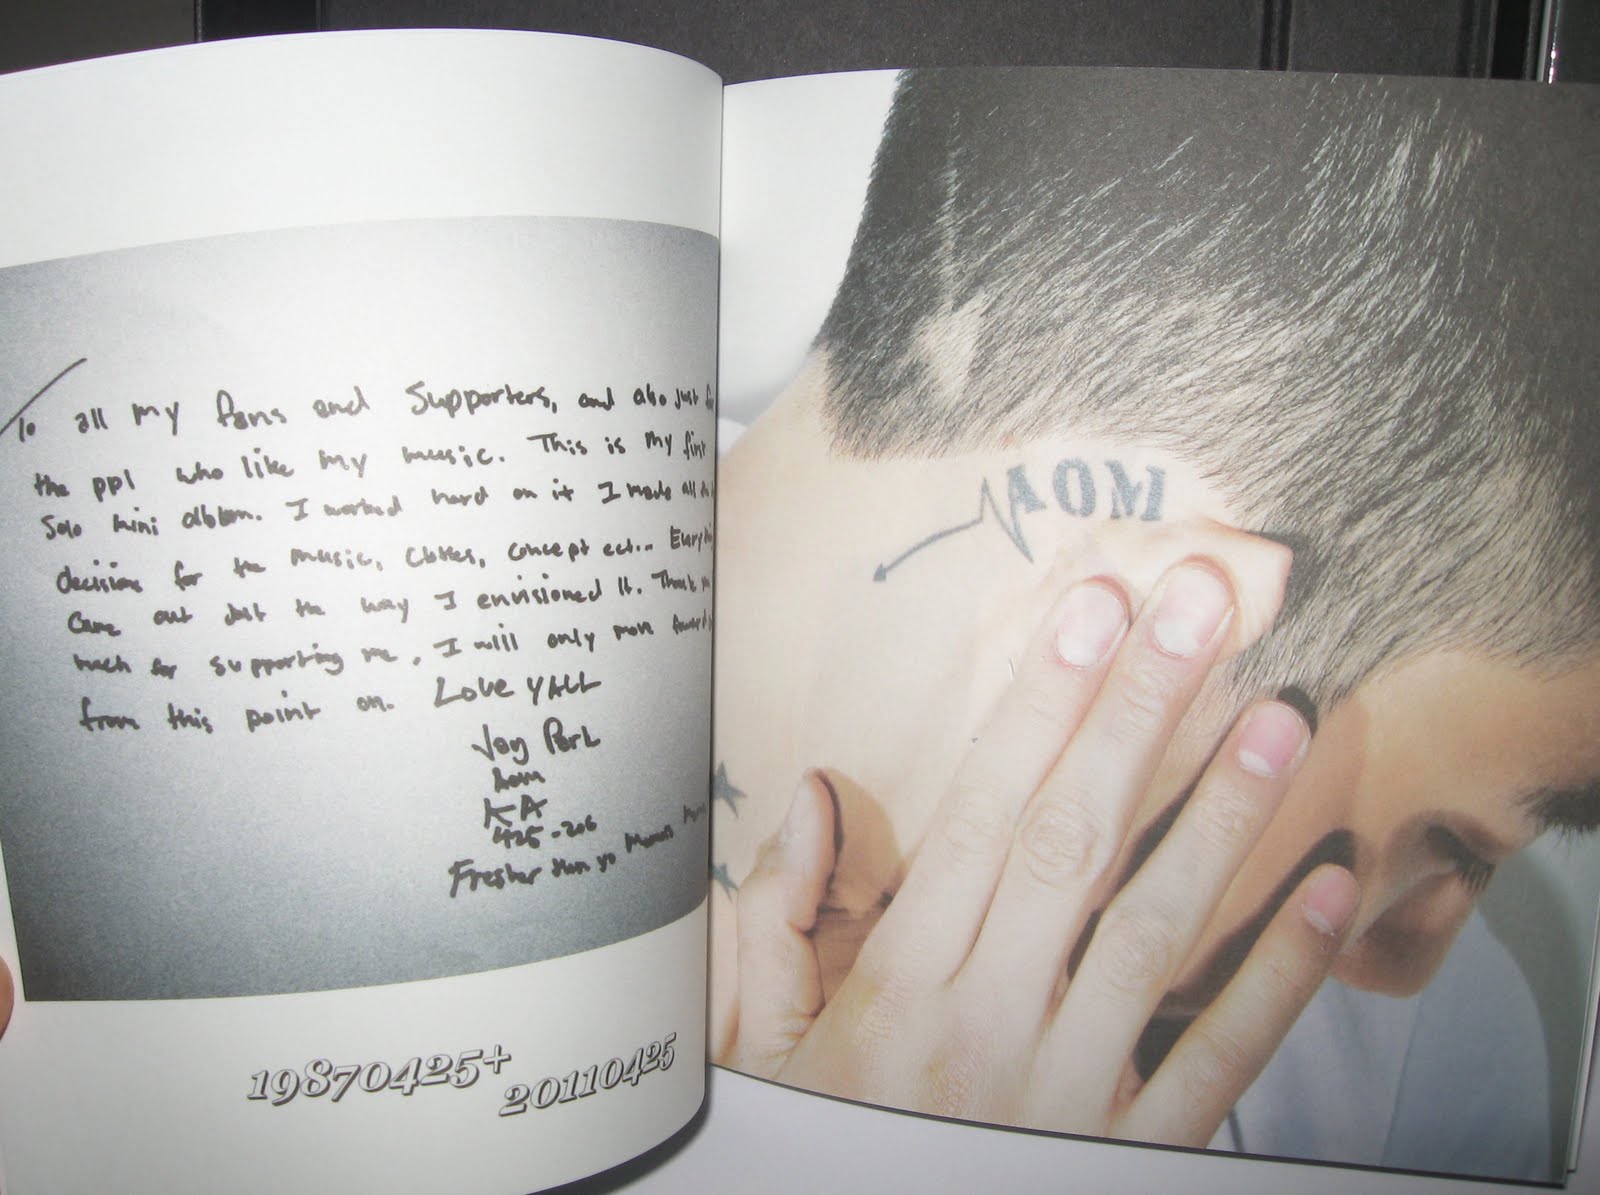 To all my fans and supporters, and also just for
the ppl who like my music. This is my first
Solo mini album. I worked hard on it I made all the
decisions for the music, clothes, concept ect... Everything
came out just the way I envisioned it. Thank you
much for supporting me, I will only move forward
from this point on. Love YALL
Jay Park
Aom
KA
425-206
Fresher than yo Mama's
19870425+
20110425
AOM